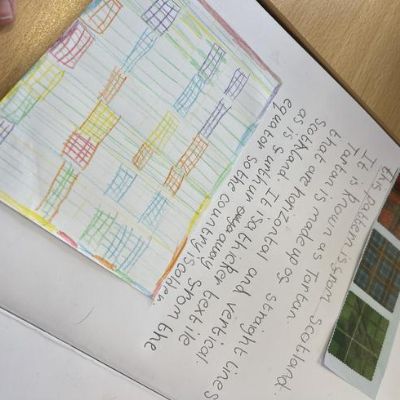 this pattern is from Scotland.
It is known as Tartan.
Tartan is made up of straight lines
that are horizontal and vertical.
Scotland. It is a thicker textile
as is gurthur away from the
equator so the country is colder